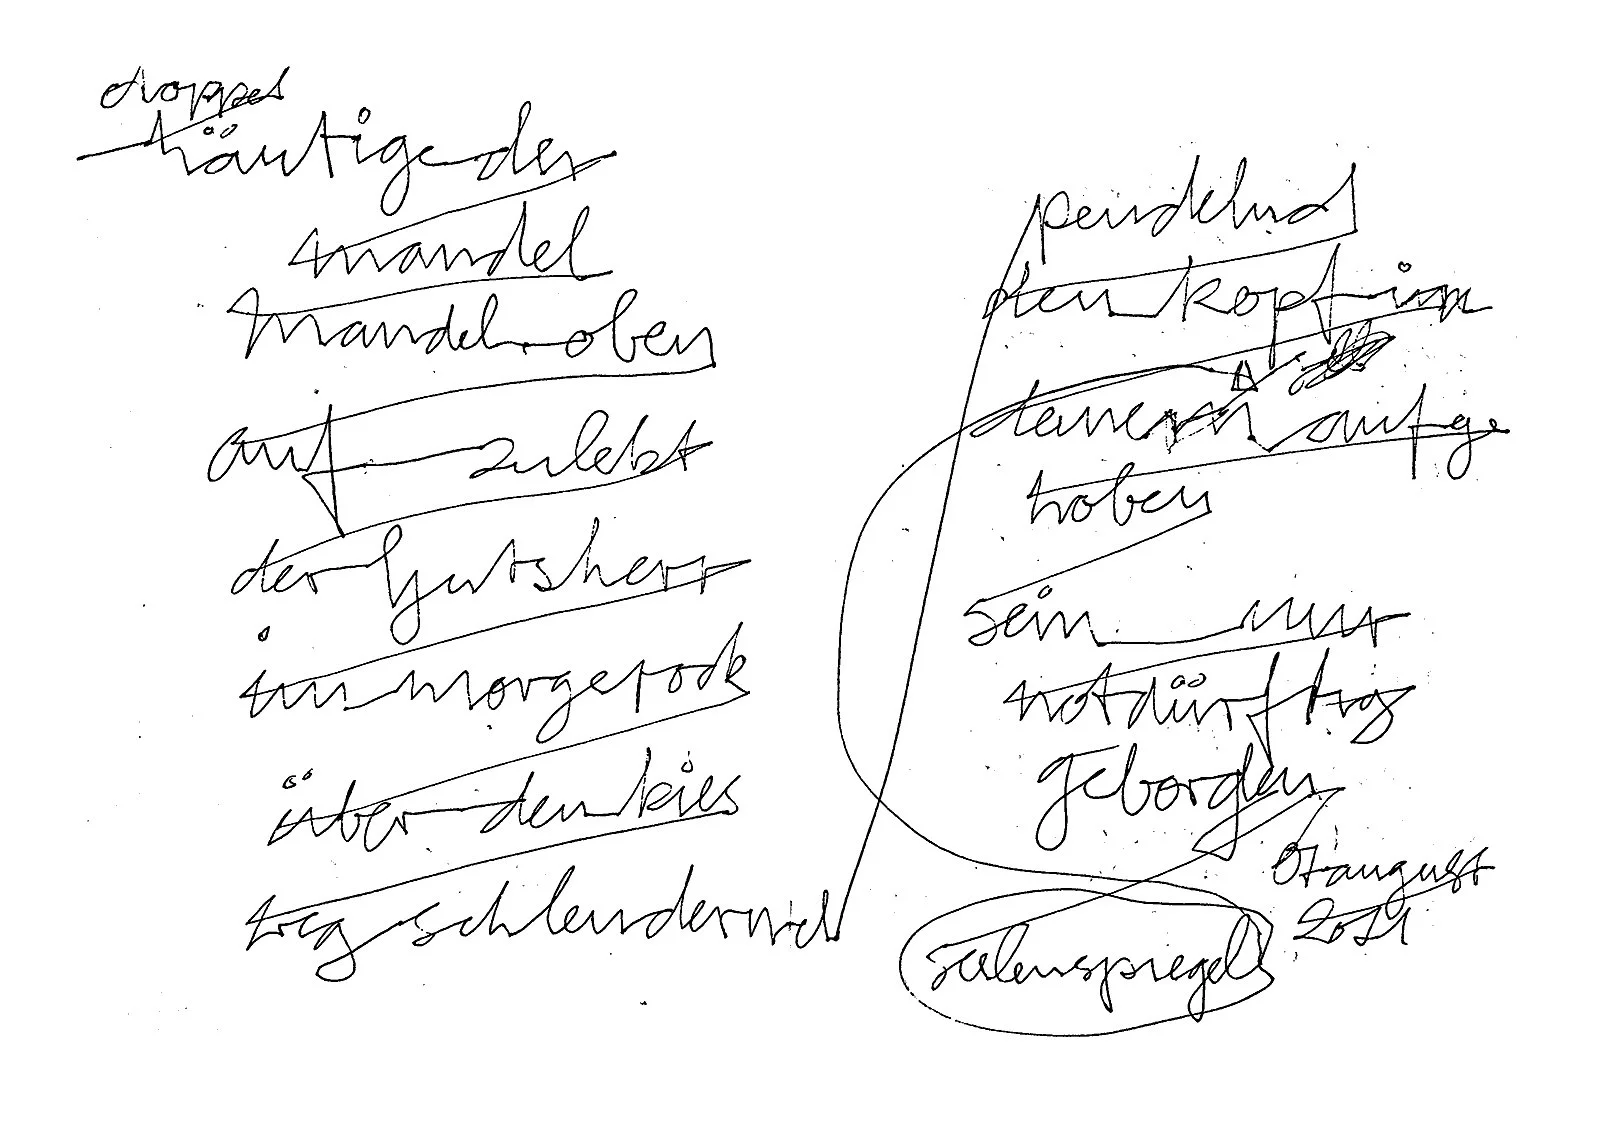 doppel
häutige der
mandel
mandel oben
auf zuletzt
der gutsherr
im morgerock
über den kies
weg schlendernd
pendelnd
den kopf im
dauern aufge
hoben
sein nur
notdürftig
geborgen
august
2021